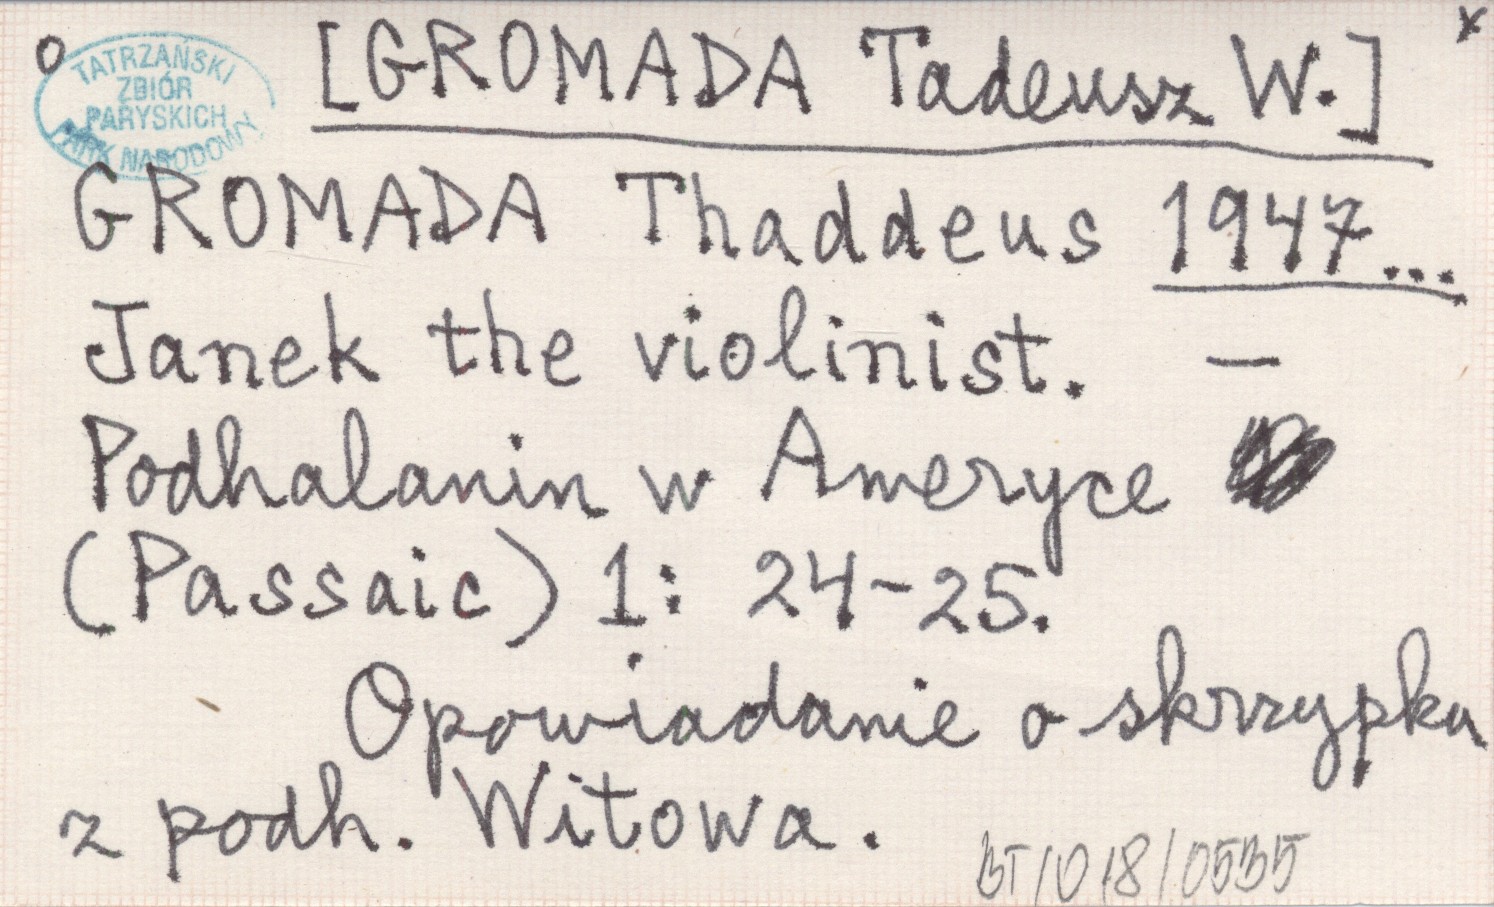 o
x
TATRZAŃSKI
ZBIÓR
PARYSKICH
PARK NARODOWY
[GROMADA Tadeusz W.]
GROMADA Thaddeus 1947...
Janek the violinist. —
Podhalanin w Ameryce
(Passaic) 1: 24-25.
Opowiadanie o skrzypku
z podh. Witowa.
BT/018/0535